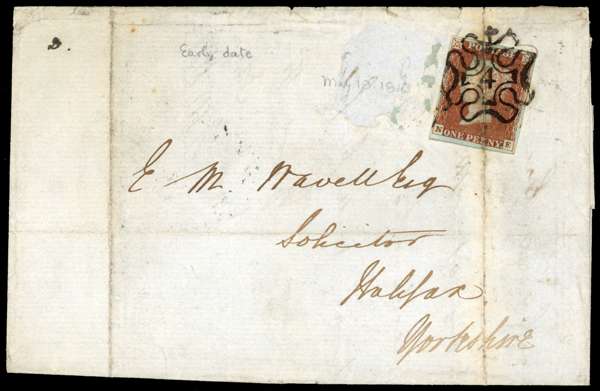 Early date
May 13
POSTAGE
4
N ONE PENNY E
E M Wavell Esq
Solicitor
Halifax
Yorkshire